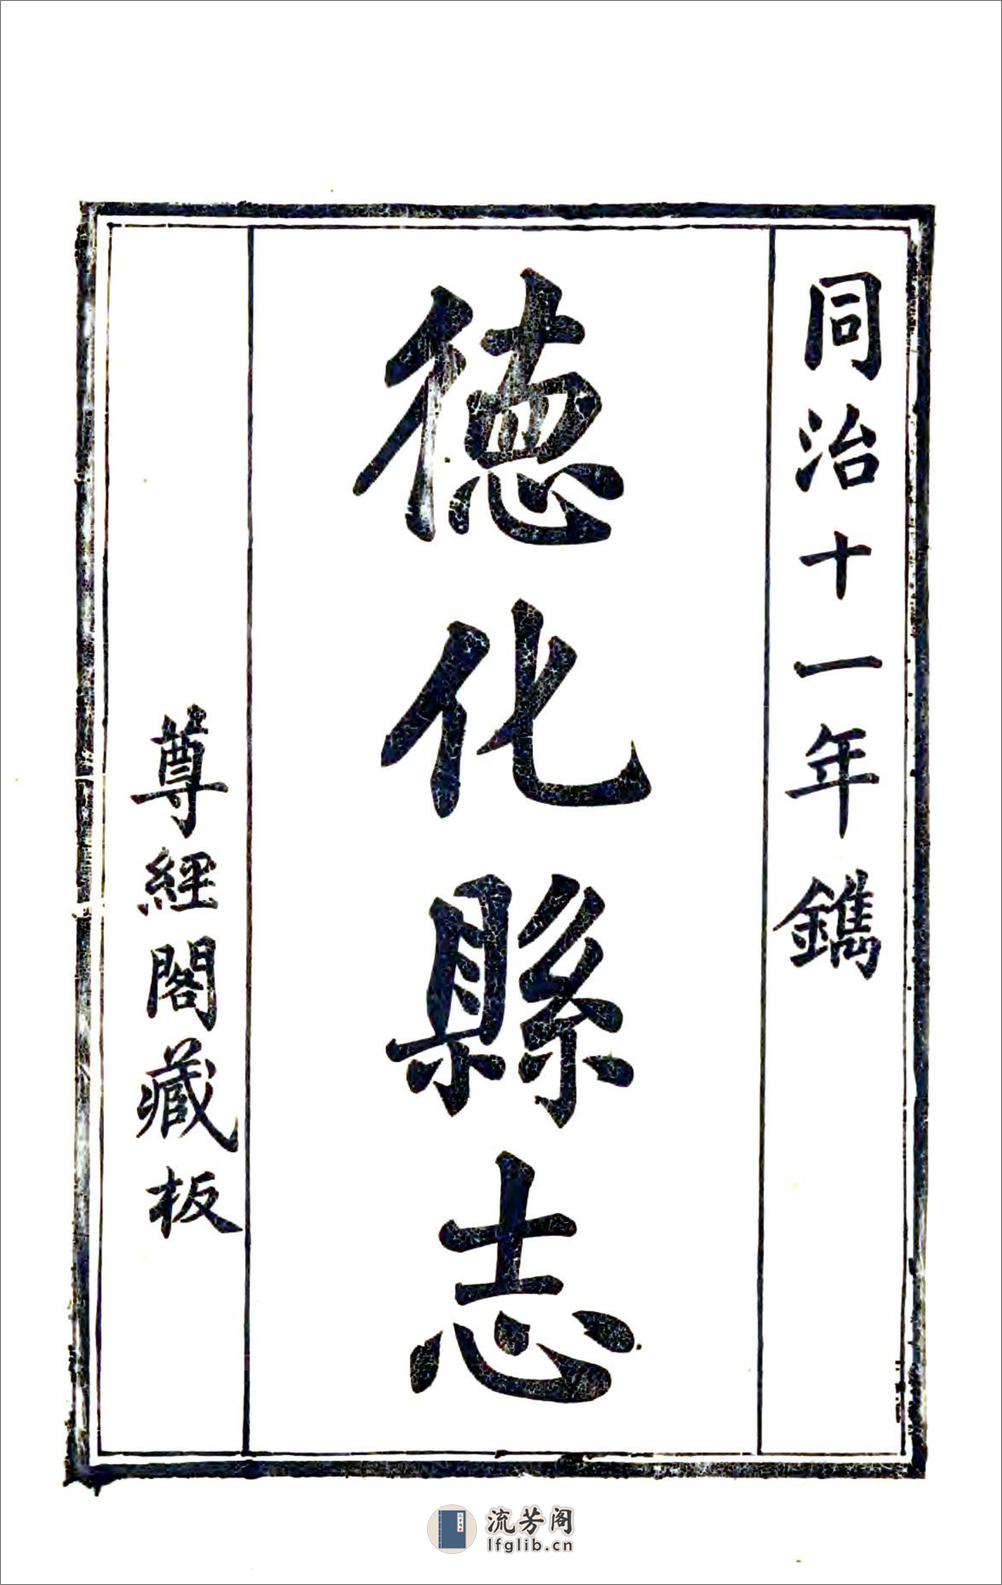 同治十一年鐫
德化縣志
尊經閣藏板
流芳阁
lfglib.cn